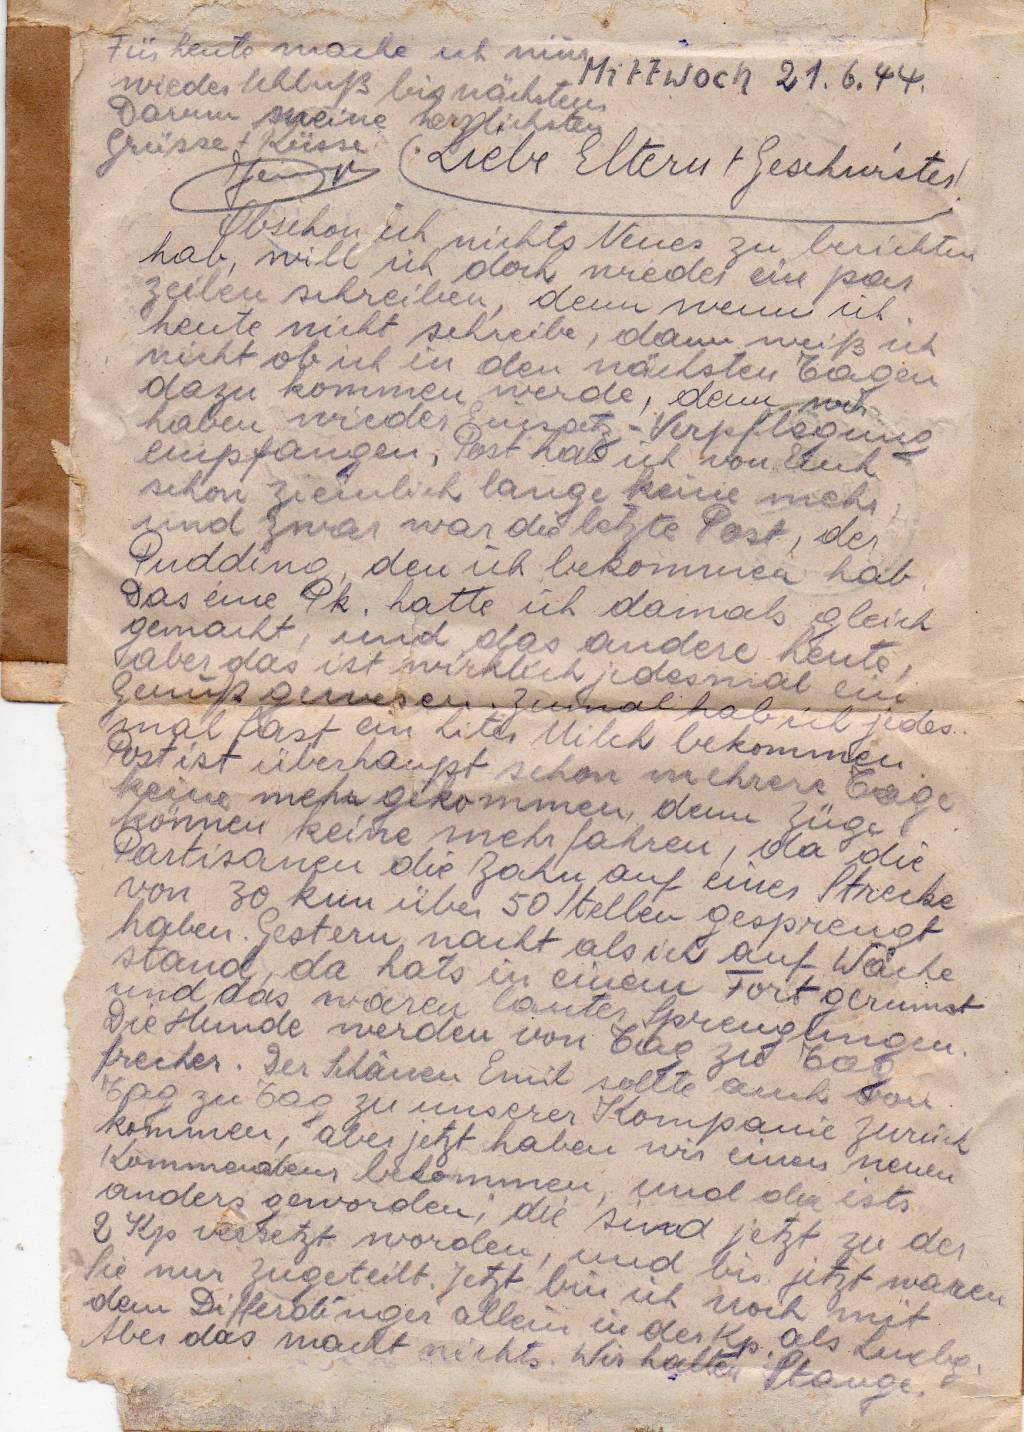 Mittwoch 21.6.44.
Liebe Eltern + Geschwister!
Obschon ich nichts Neues zu berichten
hab, will ich doch wieder ein par
zeilen schreiben, denn wenn ich
heute nicht schreibe, dann weiß ich
nicht ob ich in den nächsten Tagen
dazu kommen werde, denn wir
haben wieder Einsatz-Verpflegung
empfangen, Post hab ich von Euch
schon ziemlich lange keine mehr,
und zwar war die letzte Post, der
Pudding, den ich bekommen hab.
Das eine Pk. hatte ich damals gleich
gemacht, und das andere heute,
aber das ist wirklich jedesmal ein
Genuß gewesen. Zumal hab ich jedes-
mal fast ein Liter Milch bekommen.
Post ist überhaupt schon mehrere Tage
keine mehr gekommen, denn Züge
können keine mehr fahren, da die
Partisanen die Bahn auf einer Strecke
von 30 km über 50 Stellen gesprengt
haben. Gestern nacht als ich auf Wache
stand, da hats in einem Fort gerumst
und das waren lauter Sprenglingen.
Die Hunde werden von Tag zu Tag
frecher. Der Emil sollte auch von
Tag zu Tag zu unserer Kompanie zurück
kommen, aber jetzt haben wir einen neuen
Kommandeur bekommen, und da ists
anders geworden, die sind jetzt zu der
2 Kp versetzt worden, und bis jetzt waren
Sie nur zugeteilt. Jetzt bin ich noch mit
dem Differdinger allein in der Kp. als Luxbg.
Aber das macht nichts. Wir halten Stange.
Für heute mache ich nun
wieder Schluß bis nächstens
Darum meine herzlichsten
Grüsse + Küsse